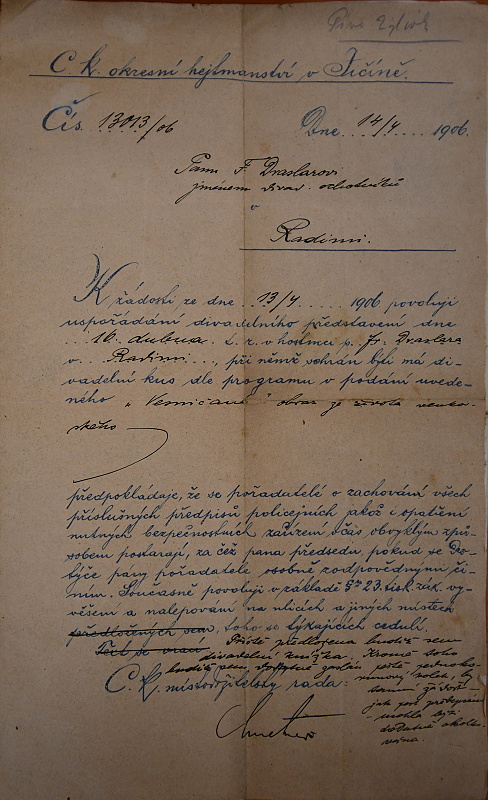 C. k. okresní hejtmanství v Jičíně.
Čís. 13013/06 Dne 14/4 1906.
Panu F. Draslarovi
jménem divad. ochotníků
v
Radimi.
K žádosti ze dne 13/4 1906 povoluji
uspořádání divadelního představení dne
16. dubna t. r. v hostinci p. Fr. Draslara
v Radimi, při němž sehrán býti má di-
vadelní kus dle programu v podání uvede-
ného „ " obraz ze života venko-
vského
předpokládaje, že se pořadatelé o zachování všech
příslušných předpisů policejních jakož i opatření
nutných bezpečnostních zařízení včas obvyklým způ-
sobem postarají, za čež pana předsedu, pokud se do-
týče pány pořadatele osobně zodpovědnými či-
ním. Současně povoluji v základě § 23. tisk. zák. vy-
věšení a nalepování na ulicích a jiných místech
předložených sem, toho se týkajících cedulí.
Text se vrací Příště předložena budiž sem
divadelní knížka. Kromě toho
budiž sem, dodatně zaslán ještě jednoko-
C. k. místodržitelský rada:
runový kolek,